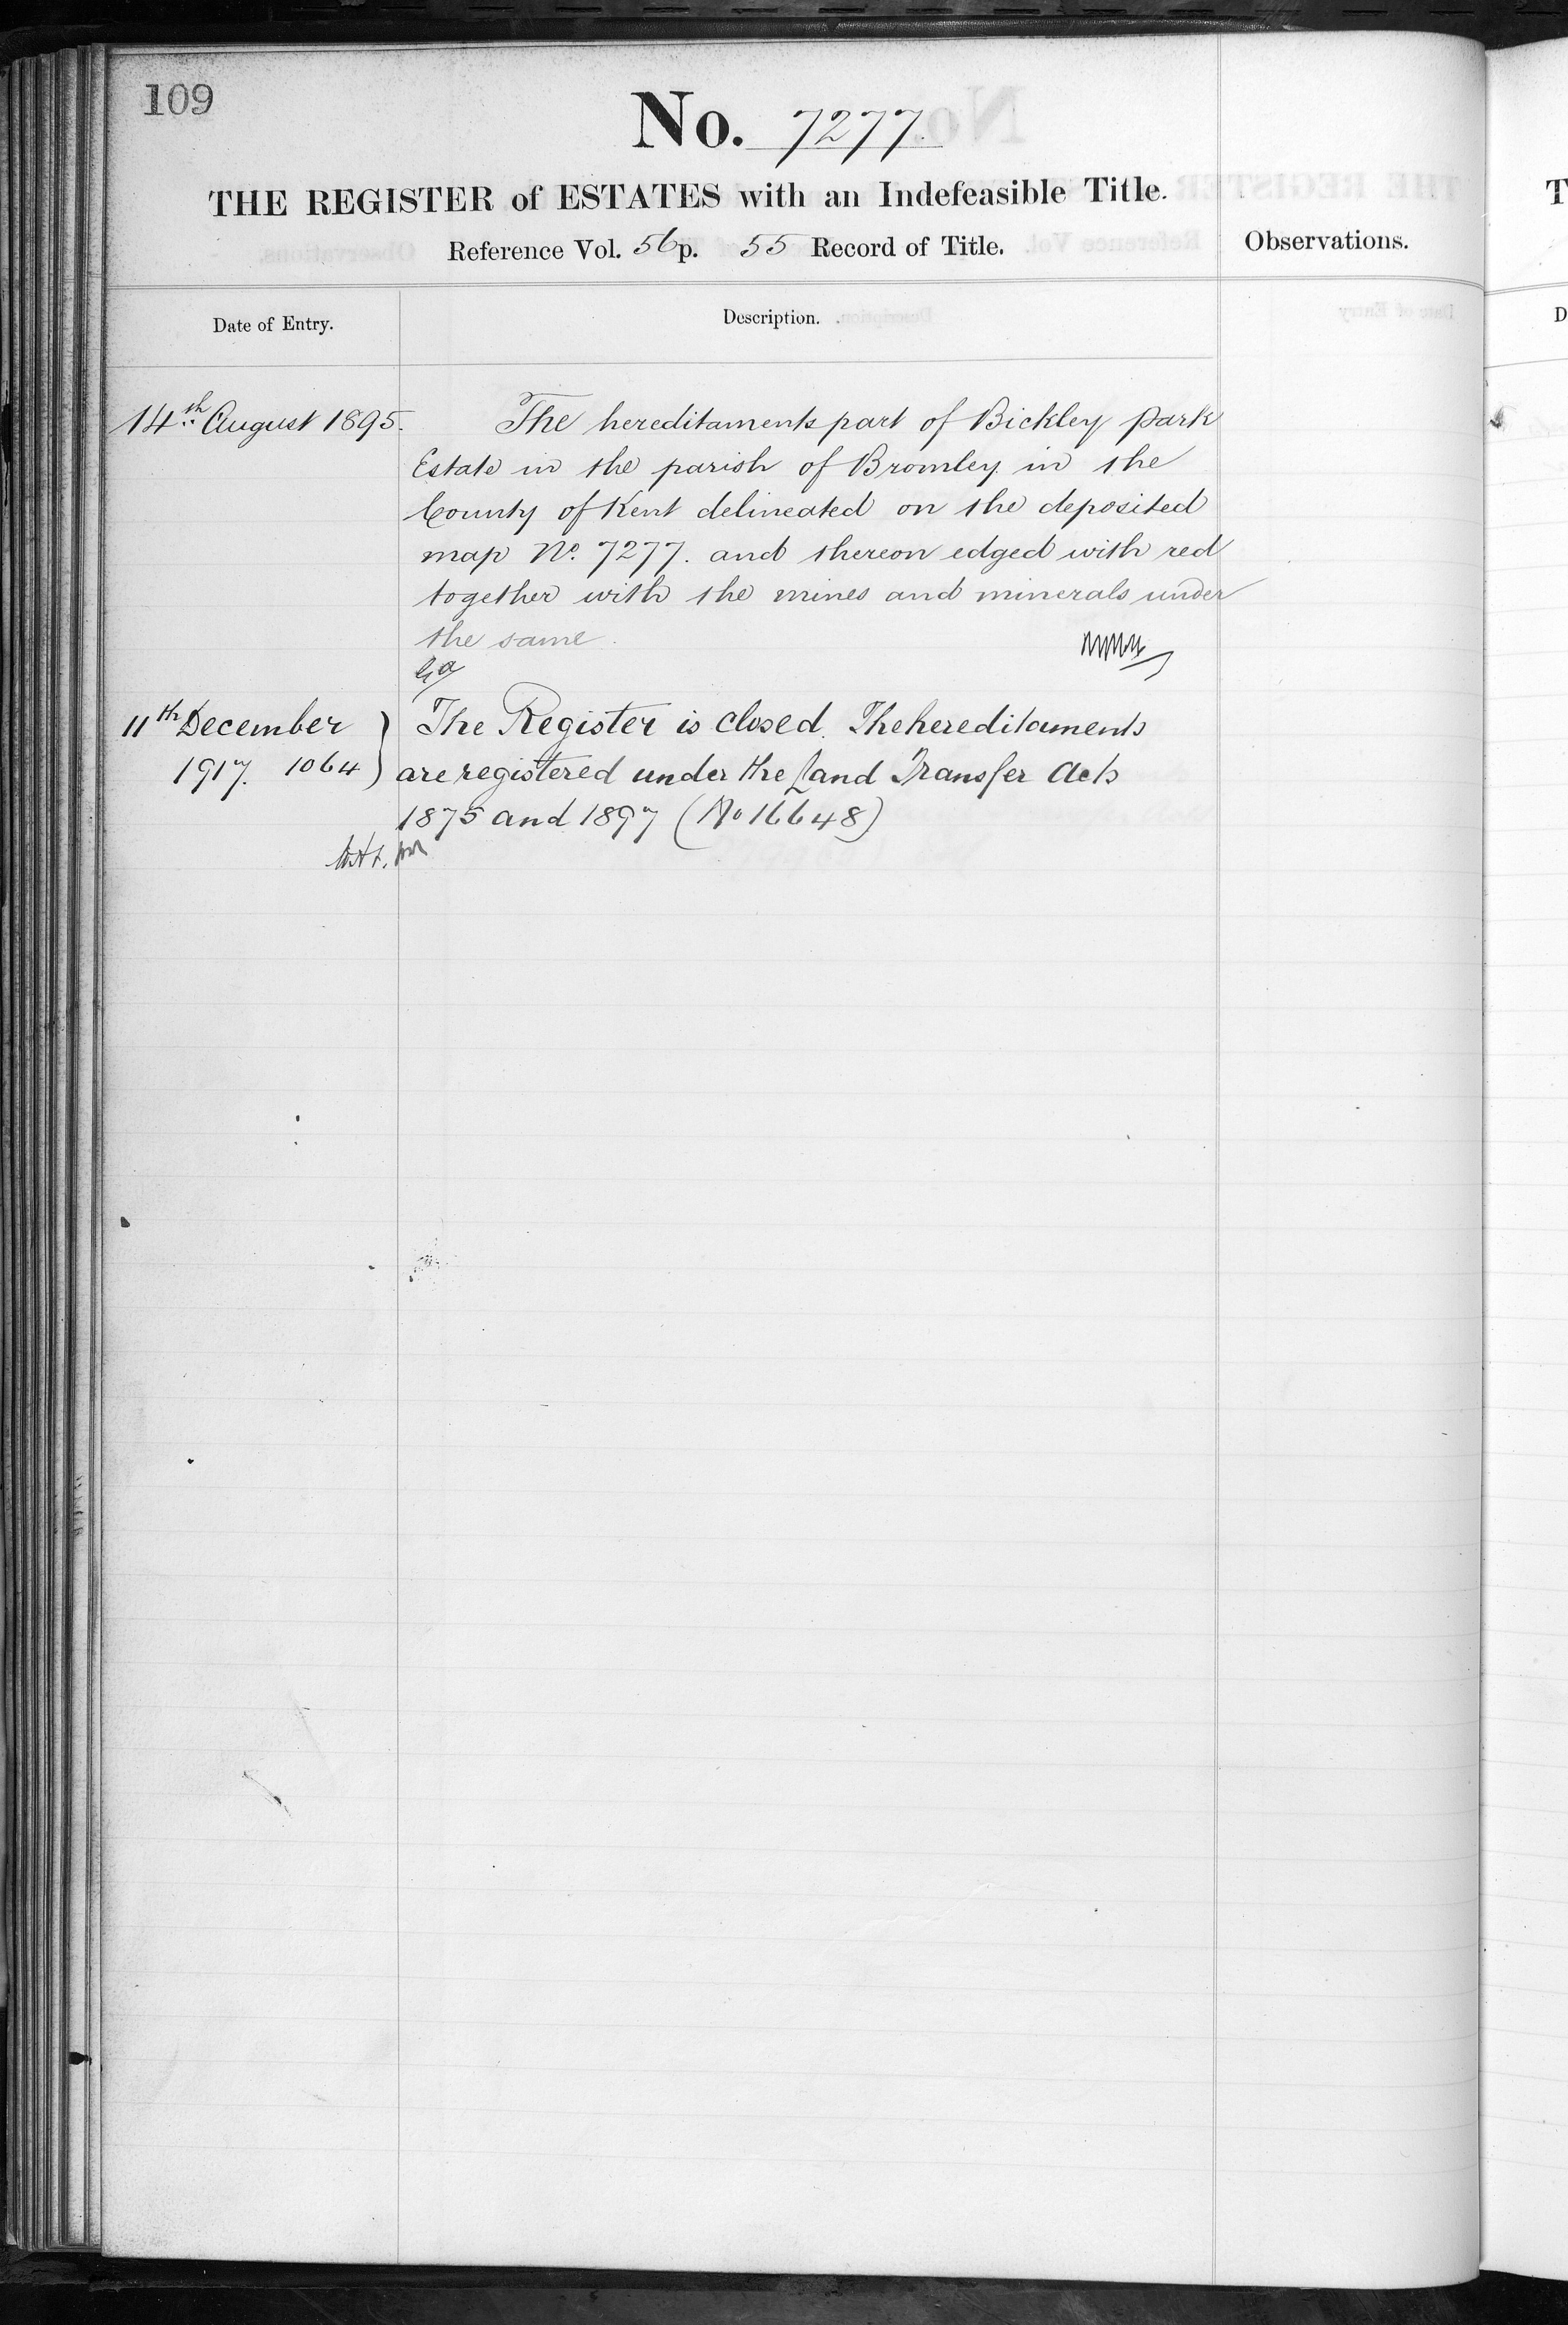 109
No. 7277.
THE REGISTER of ESTATES with an Indefeasible Title.
Reference Vol. 56 p. 55 Record of Title.
Observations.
Date of Entry.
Description.
14th August 1895.
The hereditaments part of Bickley Park
Estate in the parish of Bromley in the
County of Kent delineated on the deposited
map No. 7277. and thereon edged with red
together with the mines and minerals under
the same.
11th December
1917. 1064
The Register is closed. The hereditaments
are registered under the Land Transfer Acts
1875 and 1897 (No 16648)